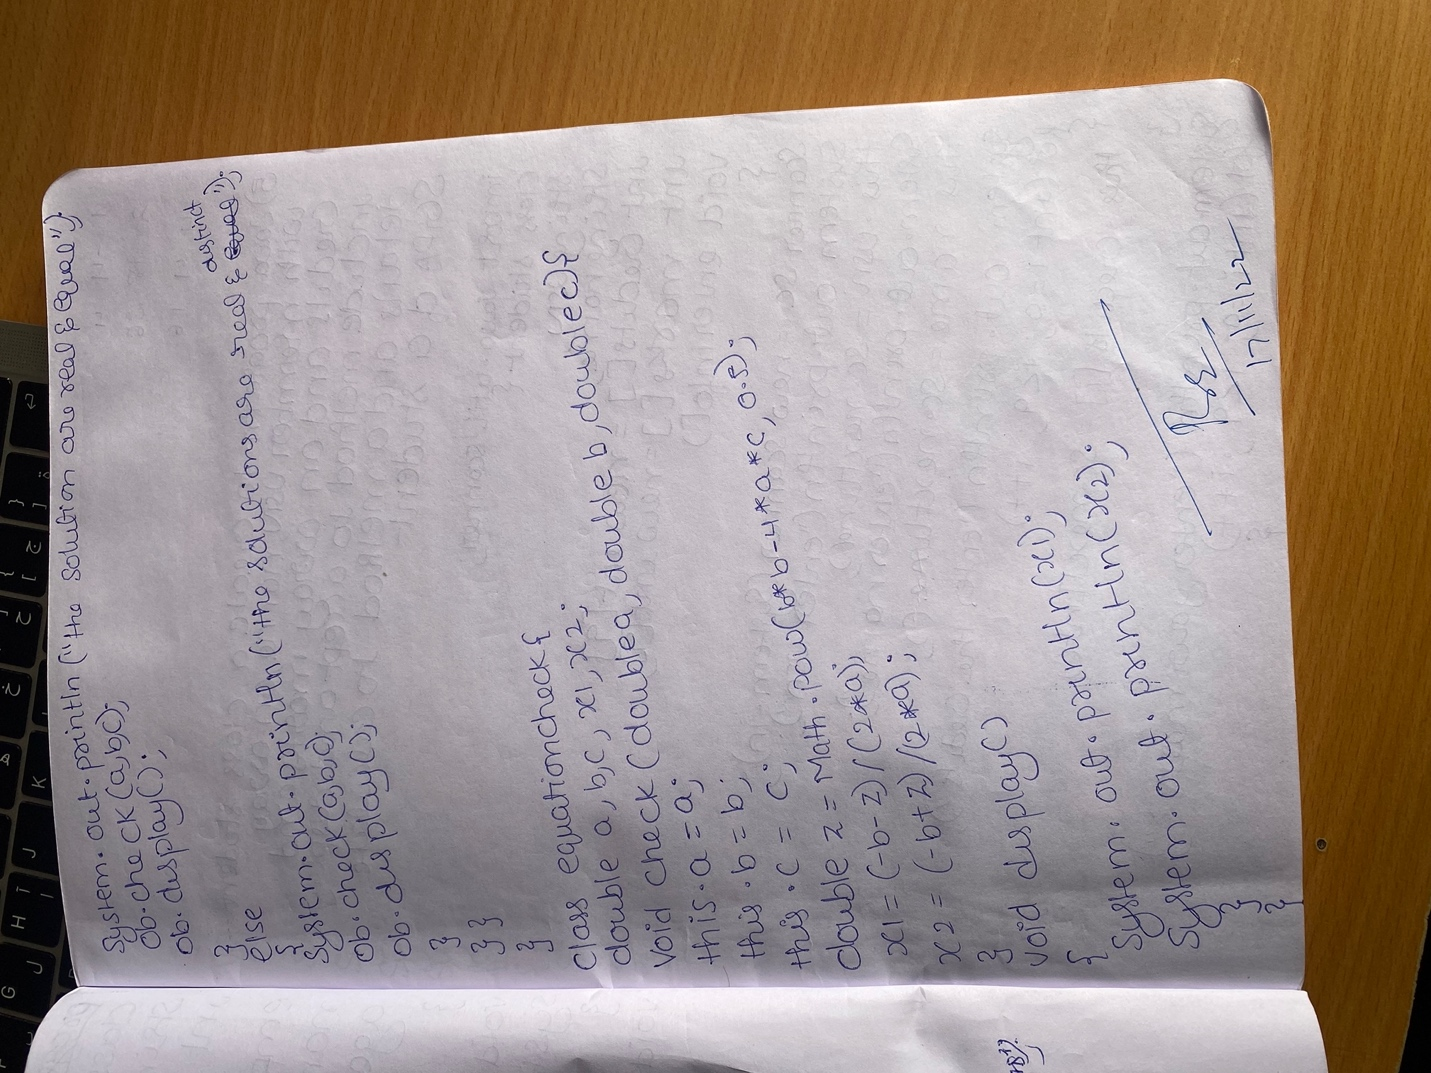 System.out.println("the solution are real & equal");
ob.check(a,b,c);
ob.display();
}
else
{
System.out.println("the solutions are real & distinct");
ob.check(a,b,c);
ob.display();
}
} }
}
class equationcheck{
double a, b, c, x1, x2;
void check(double a, double b, double c){
this.a = a;
this.b = b;
this.c = c;
double z = Math.pow(b*b-4*a*c, 0.5);
x1 = (-b-z)/(2*a);
x2 = (-b+z)/(2*a);
}
void display()
{
System.out.println(x1);
System.out.println(x2);
}
}
17/11/22